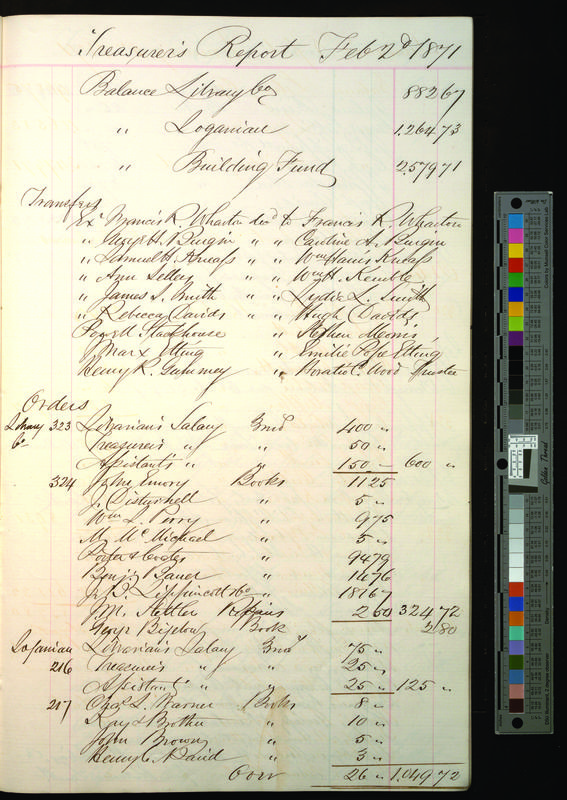 Treasurer's Report Feb 2d 1871
Balance Library Co 882 67
" Loganian 1.264 73
" Building Fund 2579 71
Transfers
Ex Francis R. Wharton dec'd to Francis R. Wharton
" George H. Burgin " " Caroline A. Burgin
" Samuel H. Kneass " " Wm Harris Kneass
" Ann Sellers " " Wm H. Kemble
" James S. Smith " " Lydia L. Smith
" Rebecca Davids " " Hugh Davids
Powell Stackhouse " Stephen Morris
Marx Etting " Emilie Pope Etting
Henry R. Gummey " Horatio C. Wood Trustee
Orders
Library Co 323 Librarian's Salary 3 mo 400 "
Treasurer's " " 50 "
Assistant's " " 150 " 600 "
324 Emory Books 11 25
J. Disturnell " 5 "
Wm L. Perry " 9 75
M. McMichael " 5 "
Porter & Coates " 94 79
Benj. Bauer " 14 76
J. B. Lippincott & Co " 181 67
J. M. Stettler Repairs 2 50 324 72
George Bigelow Book 2 80
Loganian 216 Librarian's Salary 3 mo 75 "
Treasurer's " " 25 "
Assistant's " " 25 " 125 "
217 Chas. S. Warner Books 8 "
Kay & Brother " 10 "
John Brown " 5 "
Henry C. Baird " 3 "
Over 26 " 1,049 72